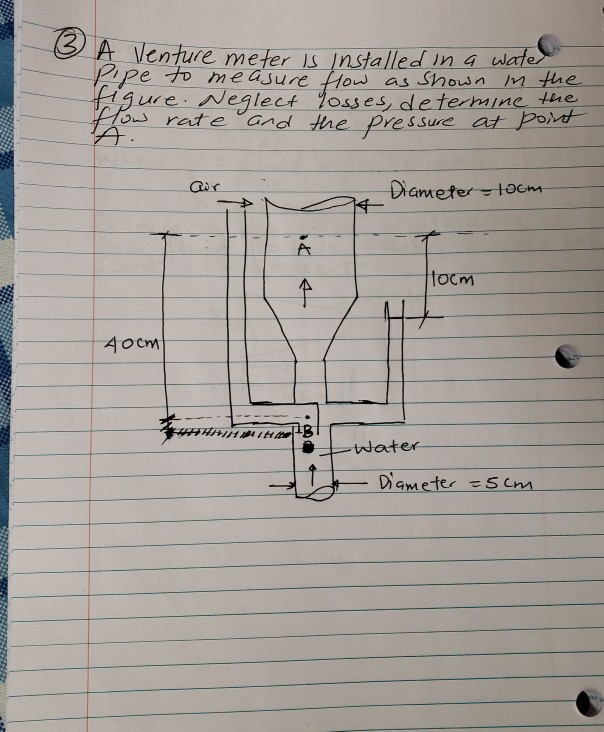 ③ A Venture meter is installed in a water
pipe to measure flow as shown in the
figure. Neglect losses, determine the
flow rate and the pressure at point
A.
air
Diameter = 10cm
A
10cm
40cm
B
Water
Diameter = 5cm